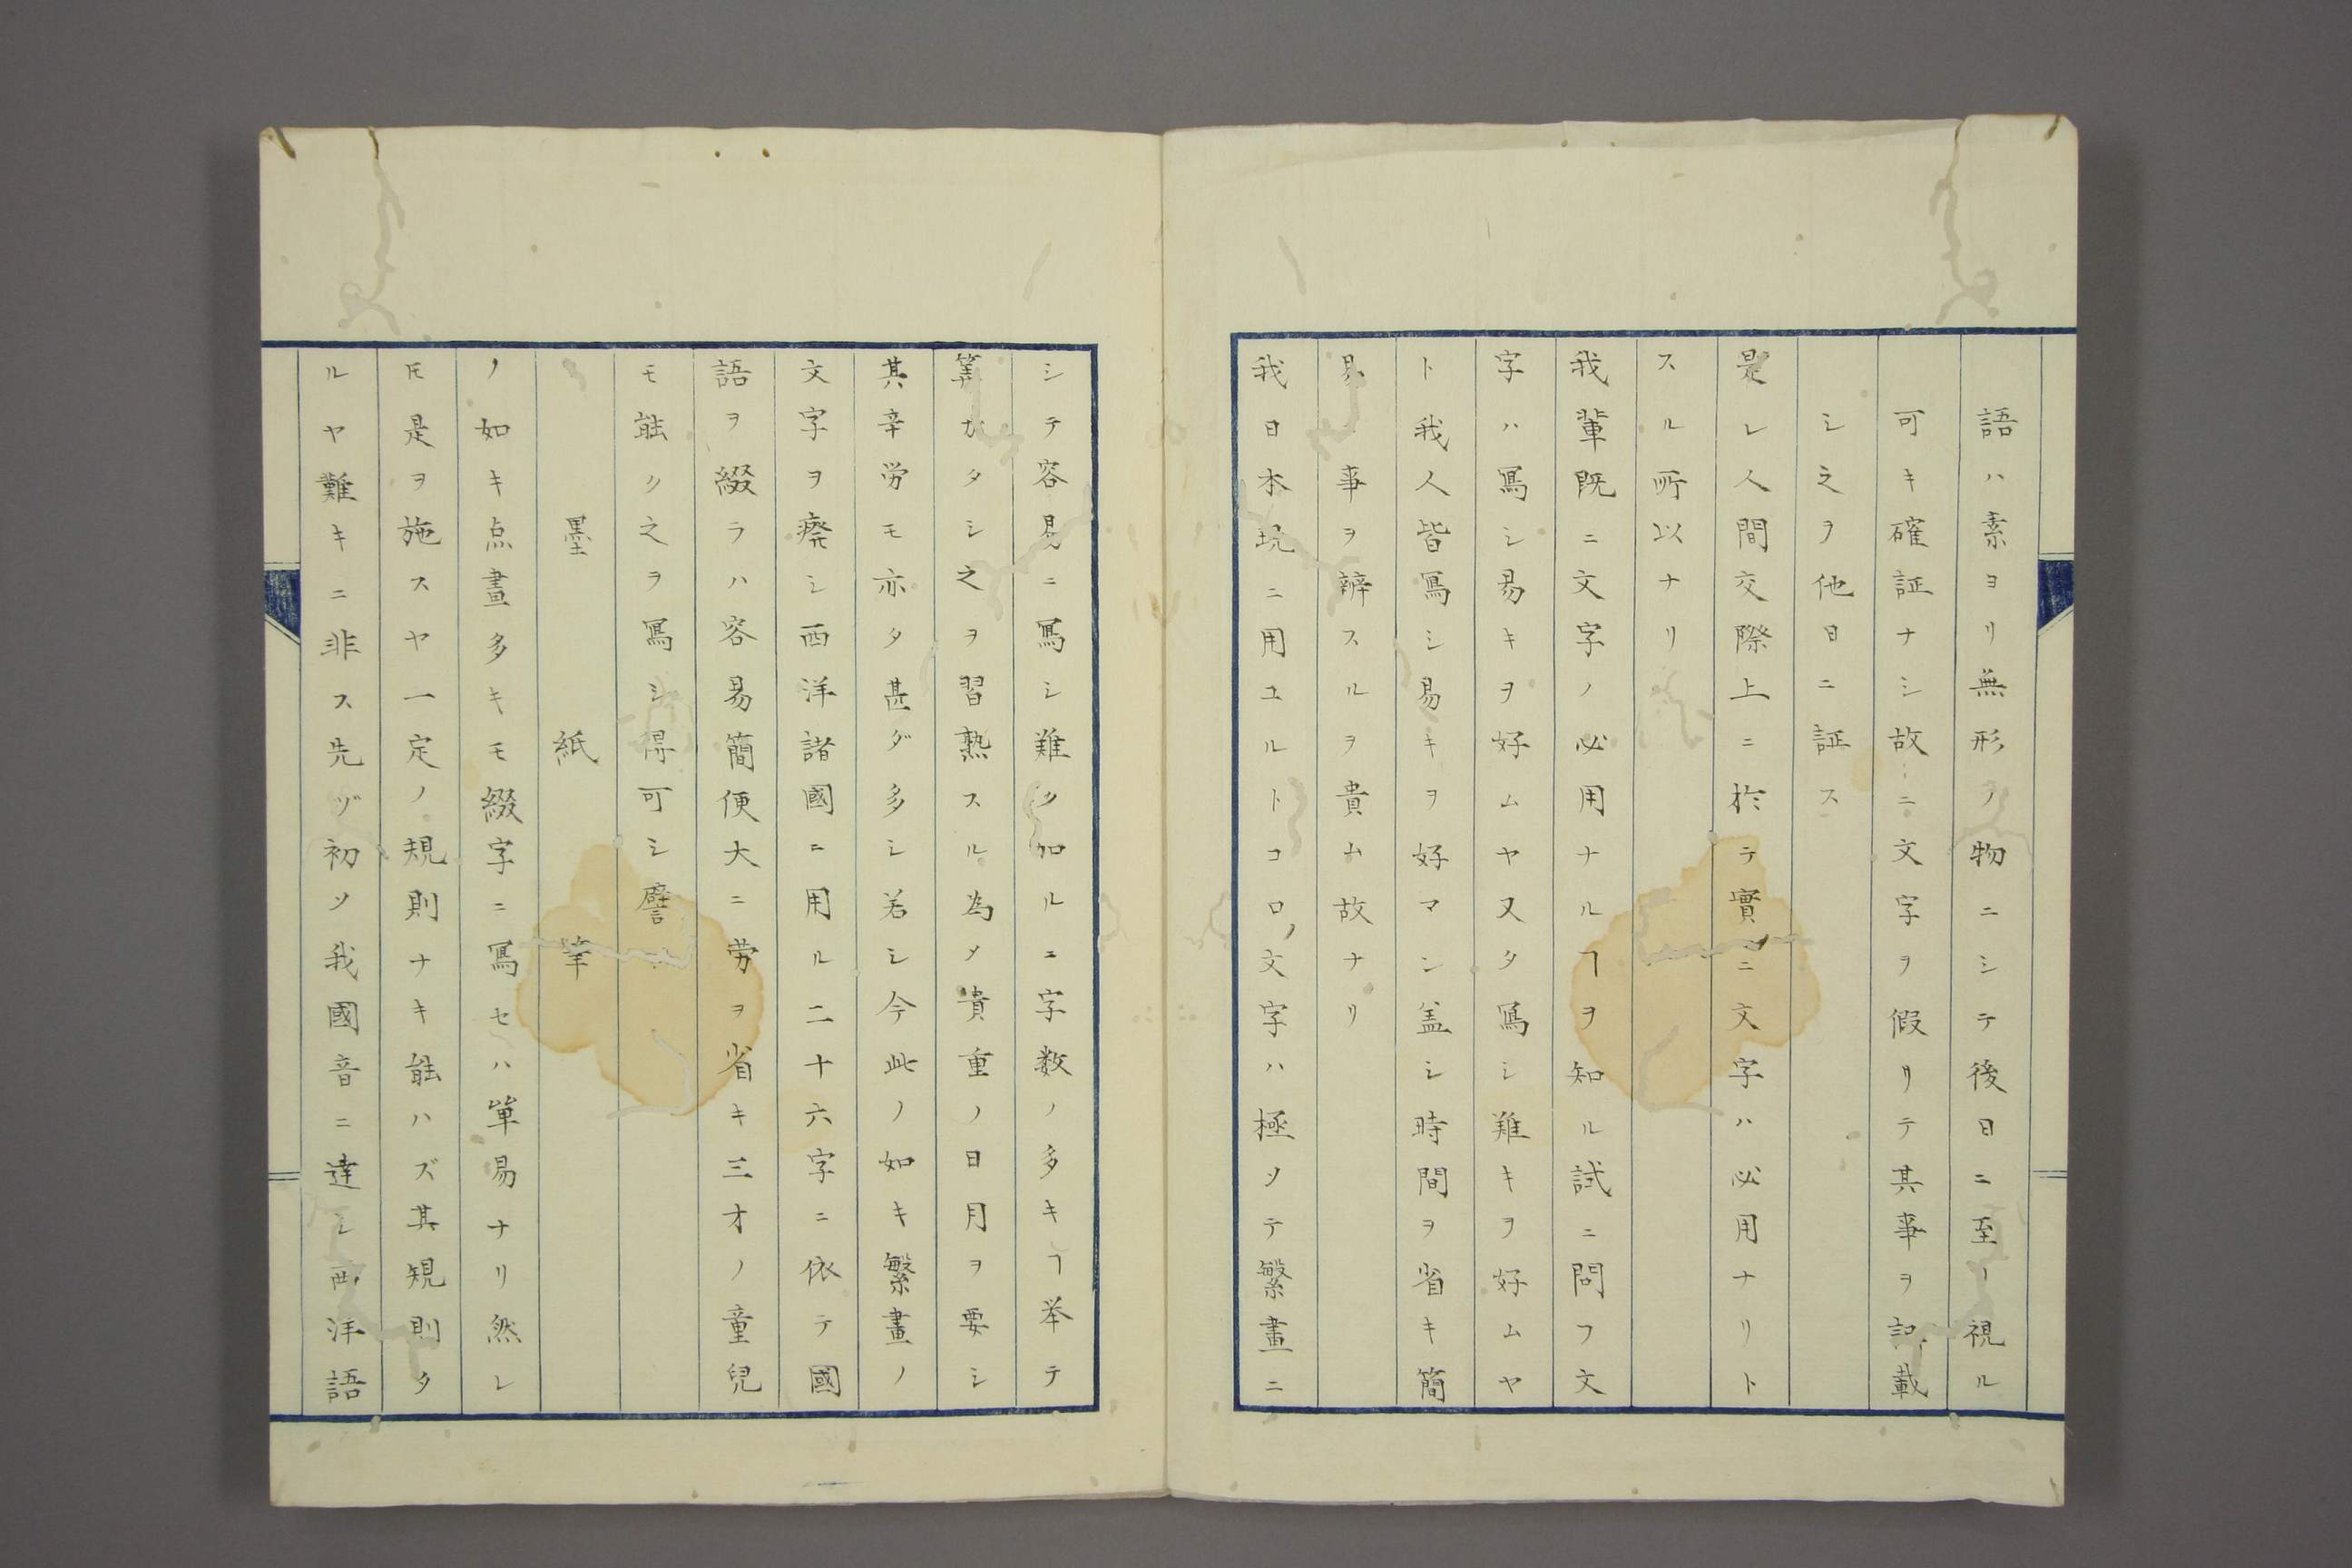 語ハ素ヨリ無形ノ物ニシテ後日ニ至リ視ル
可キ確証ナシ故ニ文字ヲ假リテ其事ヲ記載
シ之ヲ他日ニ証ス
是レ人間交際上ニ於テ實ニ文字ハ必用ナリト
スル所以ナリ
我輩既ニ文字ノ必用ナルヿヲ知ル試ニ問フ文
字ハ寫シ易キヲ好ムヤ又タ寫シ難キヲ好ムヤ
ト我人皆寫シ易キヲ好マン盖シ時間ヲ省キ簡
易事ヲ辨スルヲ貴ム故ナリ
我日本現ニ用ユルトコロ文字ハ極ソテ繁畫ニ
シテ容易ニ寫シ難ク加ルニ字数ノ多キヿ举テ
筭カタシ之ヲ習熟スル為メ貴重ノ日月ヲ要シ
其辛労モ亦タ甚ダ多シ若シ今此ノ如キ繁畫ノ
文字ヲ癈シ西洋諸國ニ用ル二十六字ニ依テ國
語ヲ綴ラハ容易簡便大ニ労ヲ省キ三才ノ童兒
モ能ク之ヲ寫シ得可シ譬
墨　紙　筆
ノ如キ点畫多キモ綴字ニ寫セハ单易ナリ然レ
𪜈是ヲ施スヤ一定ノ規則ナキ能ハズ其規則タ
ルヤ難キニ非ス先ヅ初ソ我國音ニ達シ西洋語